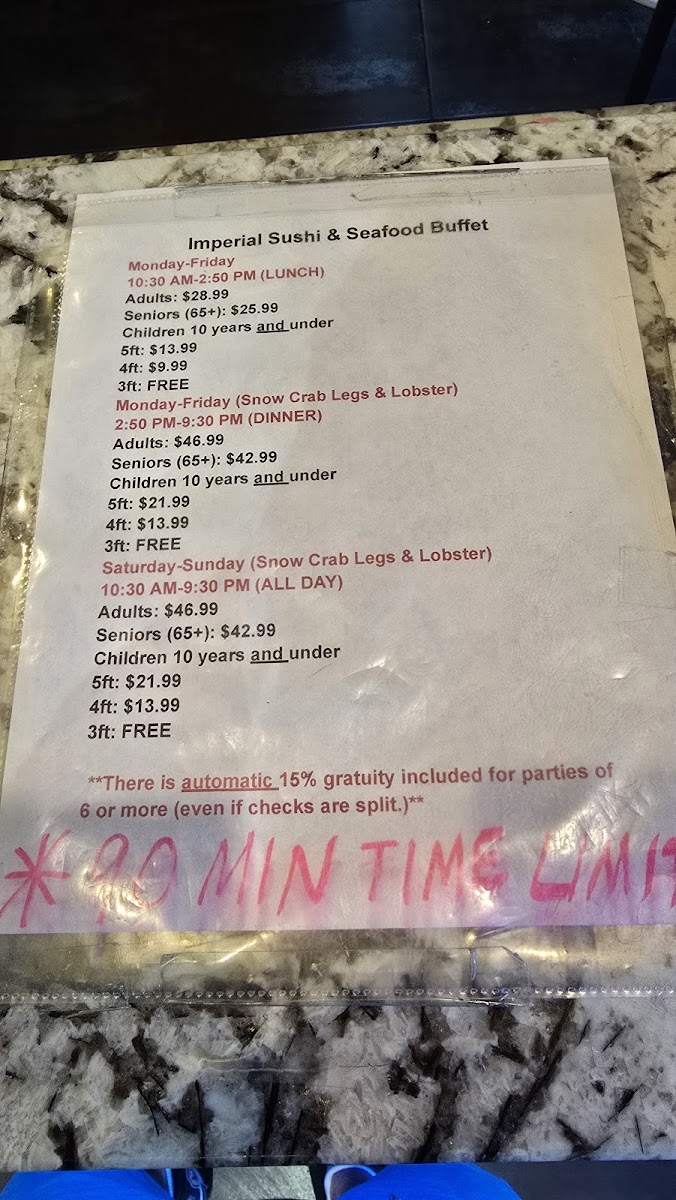 Imperial Sushi & Seafood Buffet
Monday-Friday
10:30 AM-2:50 PM (LUNCH)
Adults: $28.99
Seniors (65+): $25.99
Children 10 years and under
5ft: $13.99
4ft: $9.99
3ft: FREE
Monday-Friday (Snow Crab Legs & Lobster)
2:50 PM-9:30 PM (DINNER)
Adults: $46.99
Seniors (65+): $42.99
Children 10 years and under
5ft: $21.99
4ft: $13.99
3ft: FREE
Saturday-Sunday (Snow Crab Legs & Lobster)
10:30 AM-9:30 PM (ALL DAY)
Adults: $46.99
Seniors (65+): $42.99
Children 10 years and under
5ft: $21.99
4ft: $13.99
3ft: FREE
**There is automatic 15% gratuity included for parties of
6 or more (even if checks are split.)**
* 90 MIN TIME LIMIT